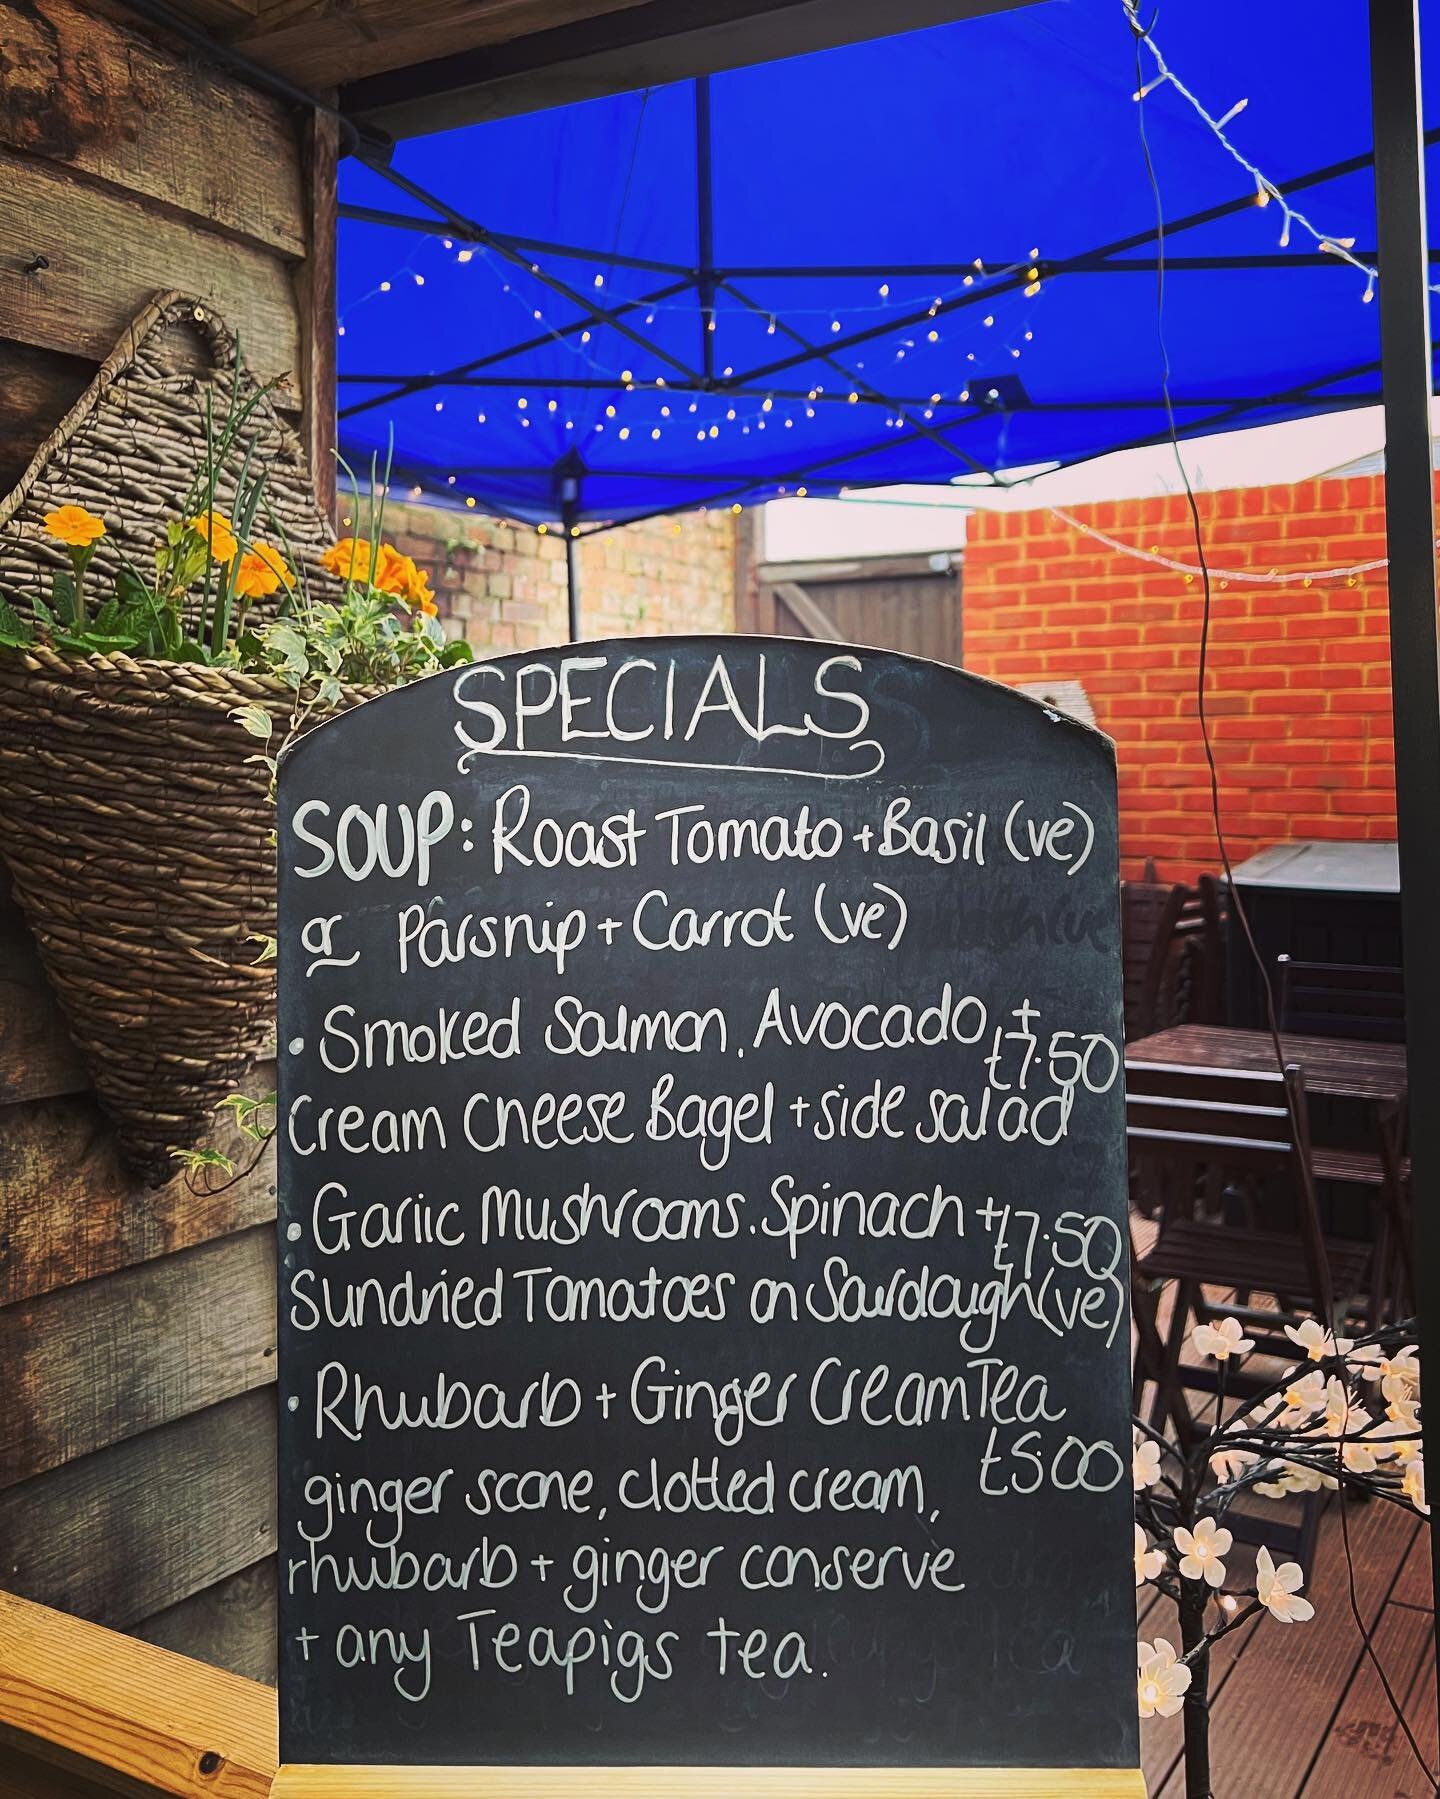 SPECIALS
SOUP: Roast Tomato + Basil (ve)
or Parsnip + Carrot (ve)
• Smoked Salmon, Avocado, +
£7.50
Cream Cheese Bagel + side salad
• Garlic Mushrooms, Spinach +
£7.50
Sundried Tomatoes on Sourdough (ve)
• Rhubarb + Ginger Cream Tea
£5.00
ginger scone, clotted cream,
rhubarb + ginger conserve
+ any Teapigs tea.